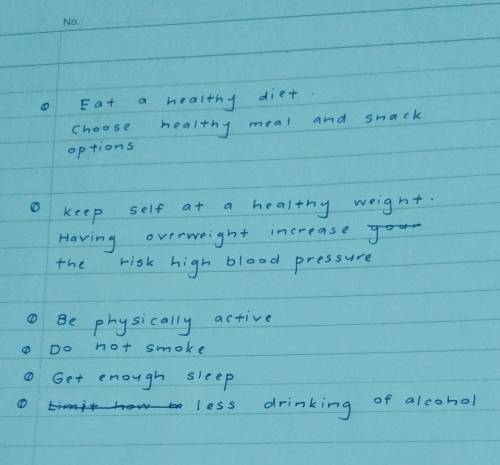 No.:
Eat a healthy diet.
choose healthy meal and snack
options
keep self at a healthy weight.
Having overweight increase your
the risk high blood pressure
Be physically active
Do not smoke
Get enough sleep
Limit how less drinking of alcohol